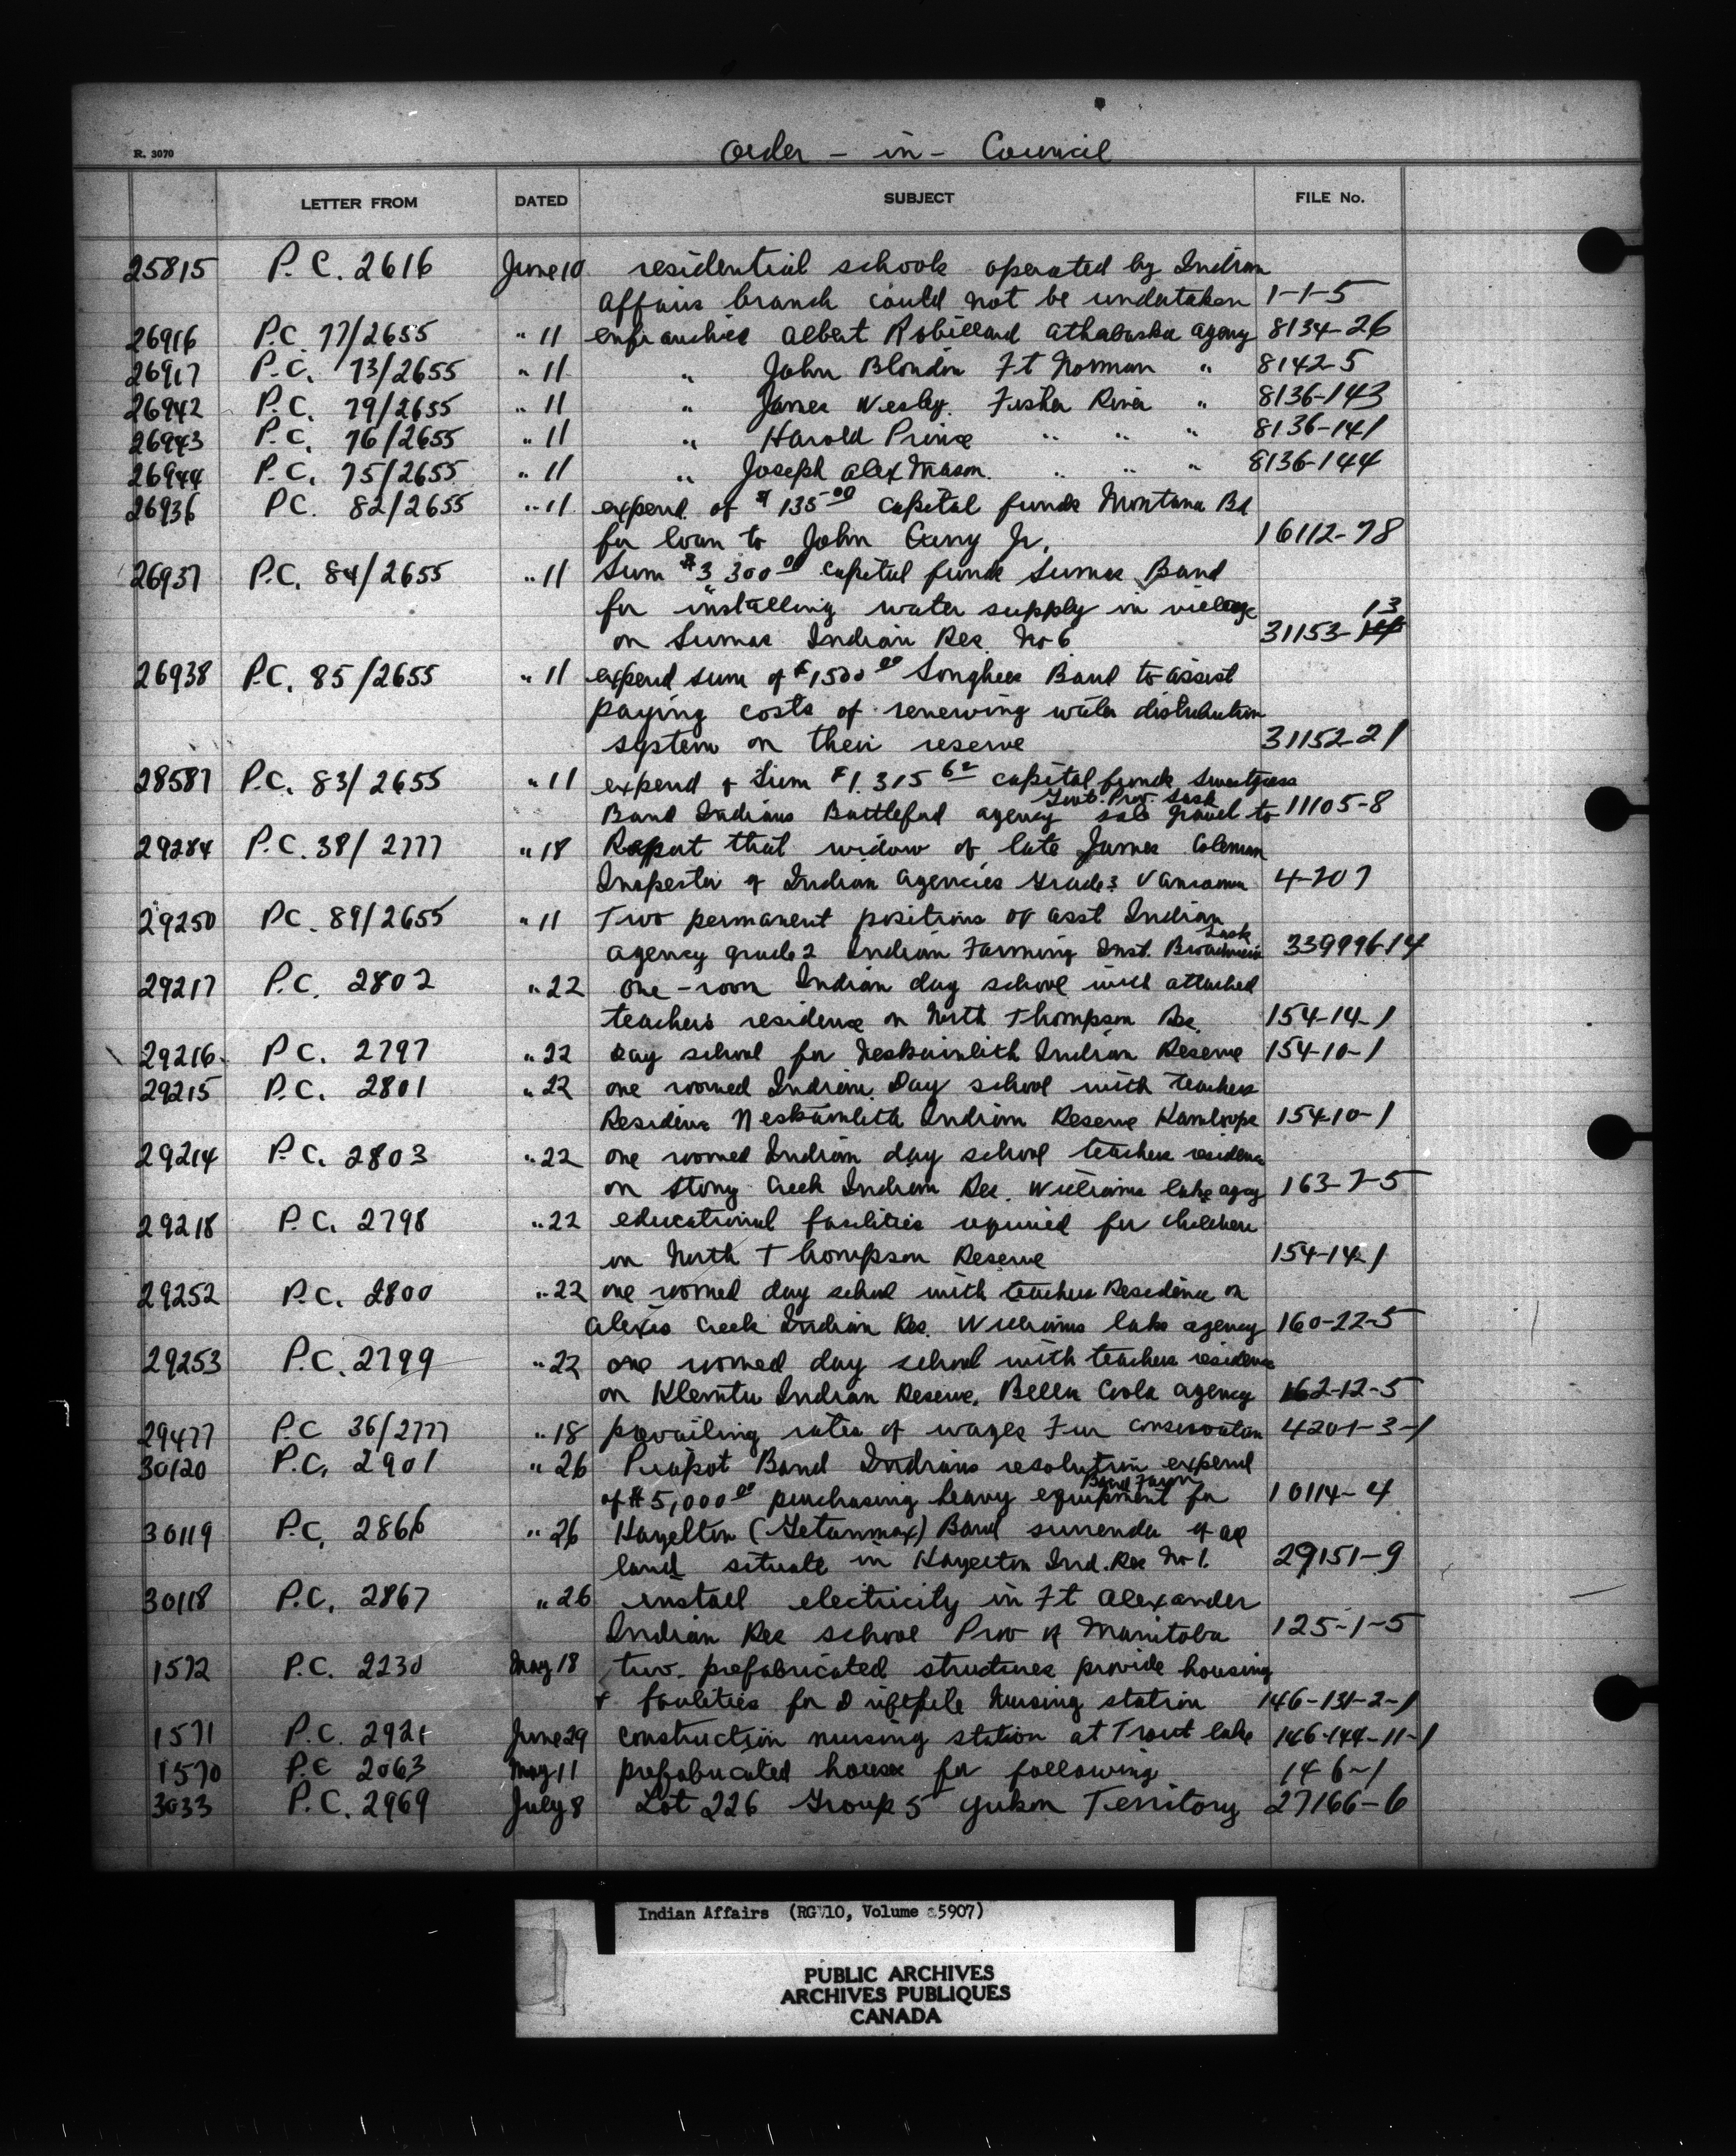 R. 3070
Order - in - Council
LETTER FROM DATED SUBJECT FILE No.
25815 P.C. 2616 June 10 residential schools operated by Indian
Affairs branch could not be undertaken 1-1-5
26916 P.C. 77/2655 " 11 enfranchise Albert Robillard Athabaska agency 8134-26
26917 P.C. 73/2655 " 11 " John Blondin Ft Norman " 8142-5
26942 P.C. 79/2655 " 11 " James Wesley Fisher River " 8136-143
26943 P.C. 76/2655 " 11 " Harold Prince " " " 8136-141
26944 P.C. 75/2655 " 11 " Joseph Alex Mason " " " 8136-144
26936 P.C. 82/2655 " 11 expend. of $135.00 capital funds Montana Bd
for loan to John Jr. 16112-78
26937 P.C. 84/2655 " 11 Sum $3,300.00 capital funds Sumas Band
for installing water supply in village 13
on Sumas Indian Res. No 6 31153-14
26938 P.C. 85/2655 " 11 expend sum of $1500.00 Songhees Band to assist
paying costs of renewing water distribution
system on their reserve 31152-21
28587 P.C. 83/2655 " 11 expend of Sum $1,315.62 capital funds Sweetgrass
Govt. Prov. Sask
Band Indians Battleford agency sale gravel to 11105-8
29284 P.C. 38/2777 " 18 Report that widow of late James Coleman
Inspector of Indian Agencies Grade 3 Vancouver 4-707
29250 P.C. 89/2655 " 11 Two permanent positions of asst Indian
Sask
agency grade 2 Indian Farming Inst. 339996-14
29217 P.C. 2802 " 22 one-room Indian day school with attached
teachers residence on North Thompson Res. 154-14-1
29216 P.C. 2797 " 22 day school for Neskainlith Indian Reserve 154-10-1
29215 P.C. 2801 " 22 one roomed Indian Day school with teachers
Residence Neskainlith Indian Reserve Kamloops 154-10-1
29214 P.C. 2803 " 22 one roomed Indian day school teachers residence
on Stony Creek Indian Res. Williams Lake agcy 163-7-5
29218 P.C. 2798 " 22 educational facilities required for children
on North Thompson Reserve 154-14-1
29252 P.C. 2800 " 22 one roomed day school with teachers Residence on
Alexis Creek Indian Res. Williams Lake agency 160-22-5
29253 P.C. 2799 " 22 one roomed day school with teachers residence
on Klemtu Indian Reserve, Bella Coola agency 162-12-5
29477 P.C. 36/2777 " 18 prevailing rates of wages Fur Conservation 4201-3-1
30120 P.C. 2901 " 26 Piapot Band Indians resolution expend
Band Farm
of $5,000.00 purchasing heavy equipment for 10114-4
30119 P.C. 2866 " 26 Hazelton (Getanmax) Band surrender of all
land situate in Hazelton Ind. Res No 1. 29151-9
30118 P.C. 2867 " 26 install electricity in Ft Alexander
Indian Res school Prov of Manitoba 125-1-5
1572 P.C. 2230 May 18 two prefabricated structures provide housing
& facilities for Driftpile Nursing station 146-131-2-1
1571 P.C. 2921 June 29 construction nursing station at Trout Lake 146-144-11-1
1570 P.C. 2063 May 11 prefabricated houses for following 146-1
3033 P.C. 2969 July 8 Lot 226 Group 5 Yukon Territory 27166-6
Indian Affairs (RG 10, Volume 5907)
PUBLIC ARCHIVES
ARCHIVES PUBLIQUES
CANADA